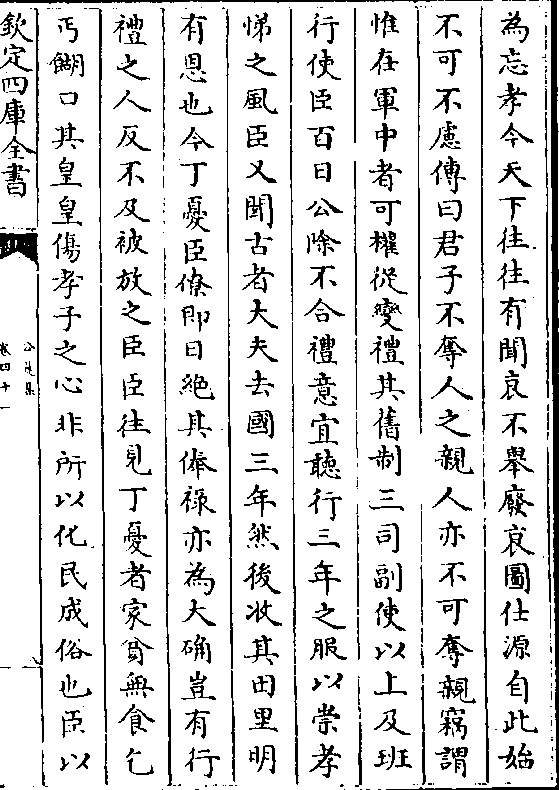 為忘孝今天下往往有聞哀不舉廢哀圖仕源自此始
不可不慮傳曰君子不奪人之親人亦不可奪親竊謂
惟在軍中者可權從變禮其舊制三司副使以上及班
行使臣百日公除不合禮意宜聽行三年之服以崇孝
悌之風臣又聞古者大夫去國三年然後收其田里明
有恩也今丁憂臣僚即日絶其俸祿亦為大确豈有行
禮之人反不及被放之臣臣往見丁憂者家貧無食乞
丐餬口其皇皇傷孝子之心非所以化民成俗也臣以
欽定四庫全書
公是集
卷四十一